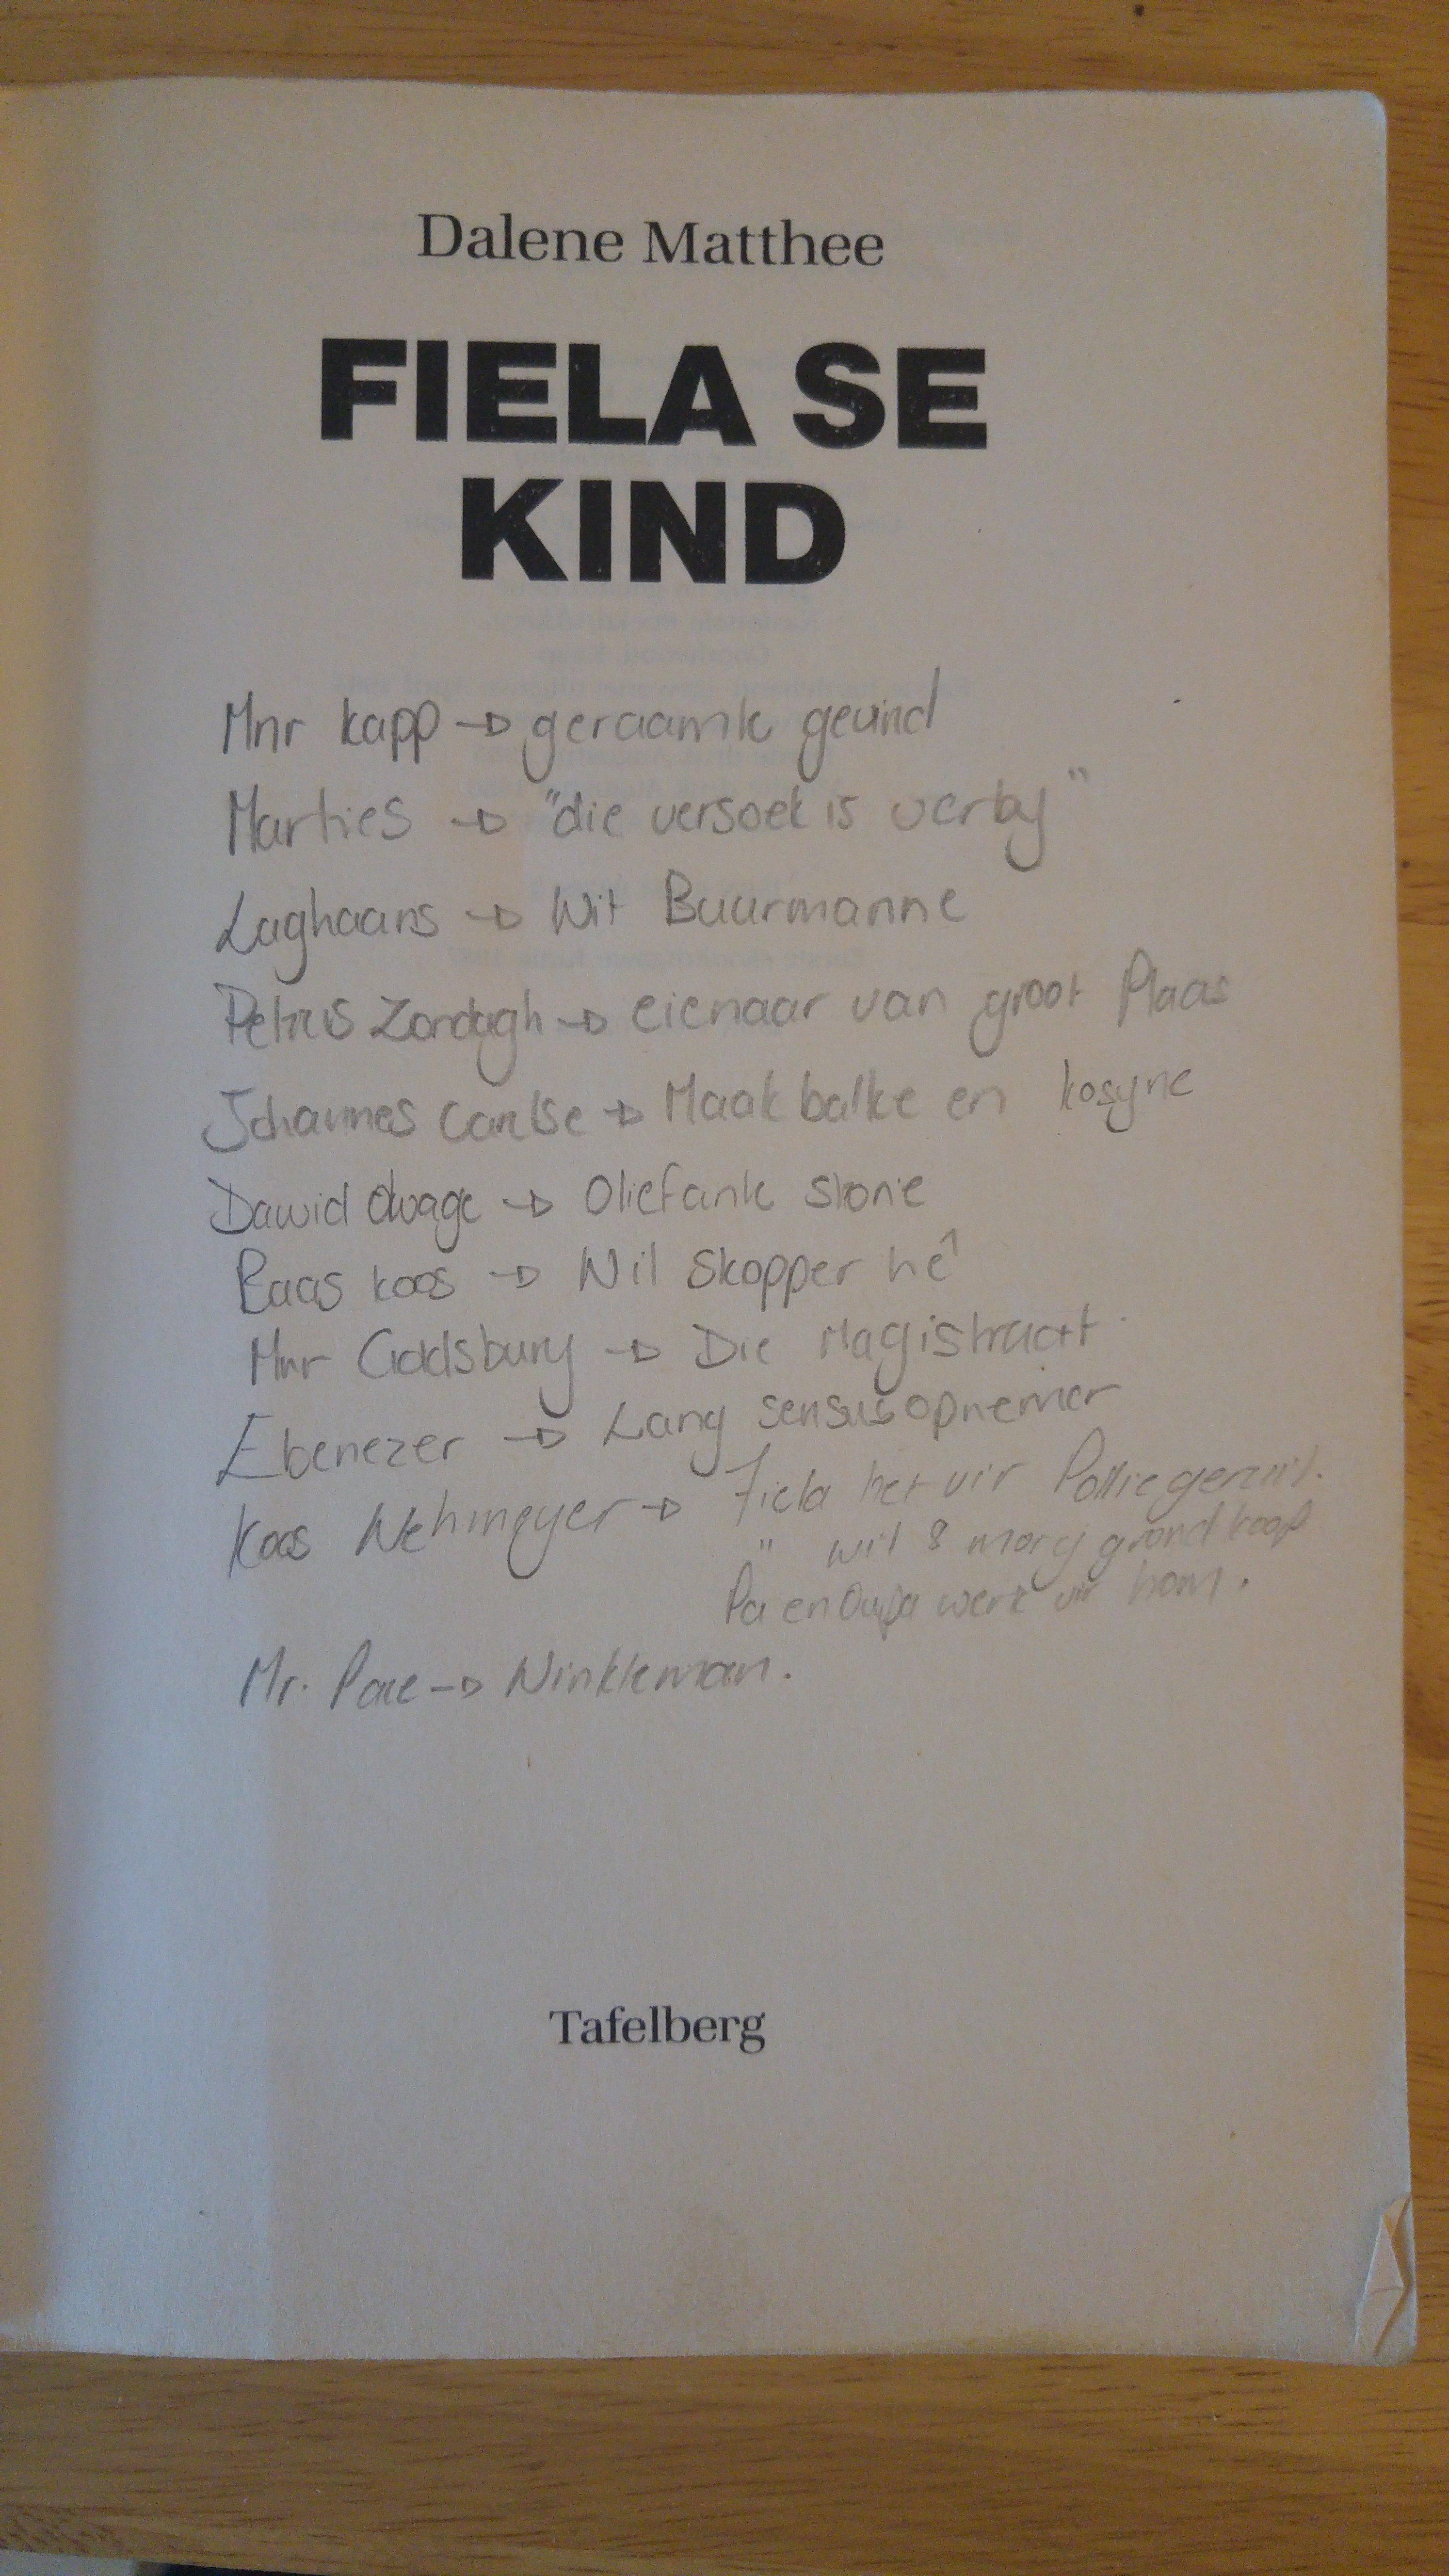 Dalene Matthee
FIELA SE
KIND
Mnr kapp → geraamte gevind
Marties → "die versoek is verby"
Laghaans → Wit Buurmanne
Petrus Zondagh → eienaar van groot Plaas
Johannes Carelse → Maak balke en kosyne
Dawid → Oliefant storie
Baas koos → Wil Skopper hê
Mnr Goldsbury → Die Magistraat
Ebenezer → Lang sensusopnemer
Koos Wehmeyer → Fiela het vir Pollie geruil.
" wil 8 morg grond koop
Pa en Oupa werk vir hom.
Mr. → Winkleman.
Tafelberg